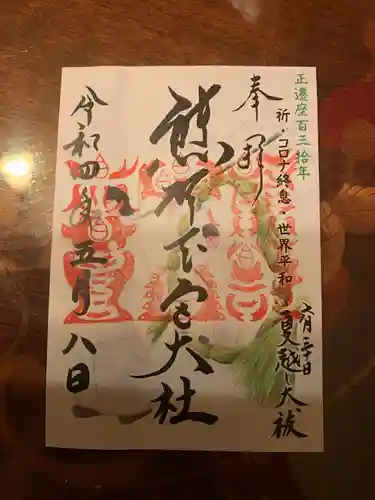 正遷座百三拾年
祈・コロナ終息・世界平和
六月三十日
夏越し大祓
奉拝
熊野本宮大社
令和四年五月八日